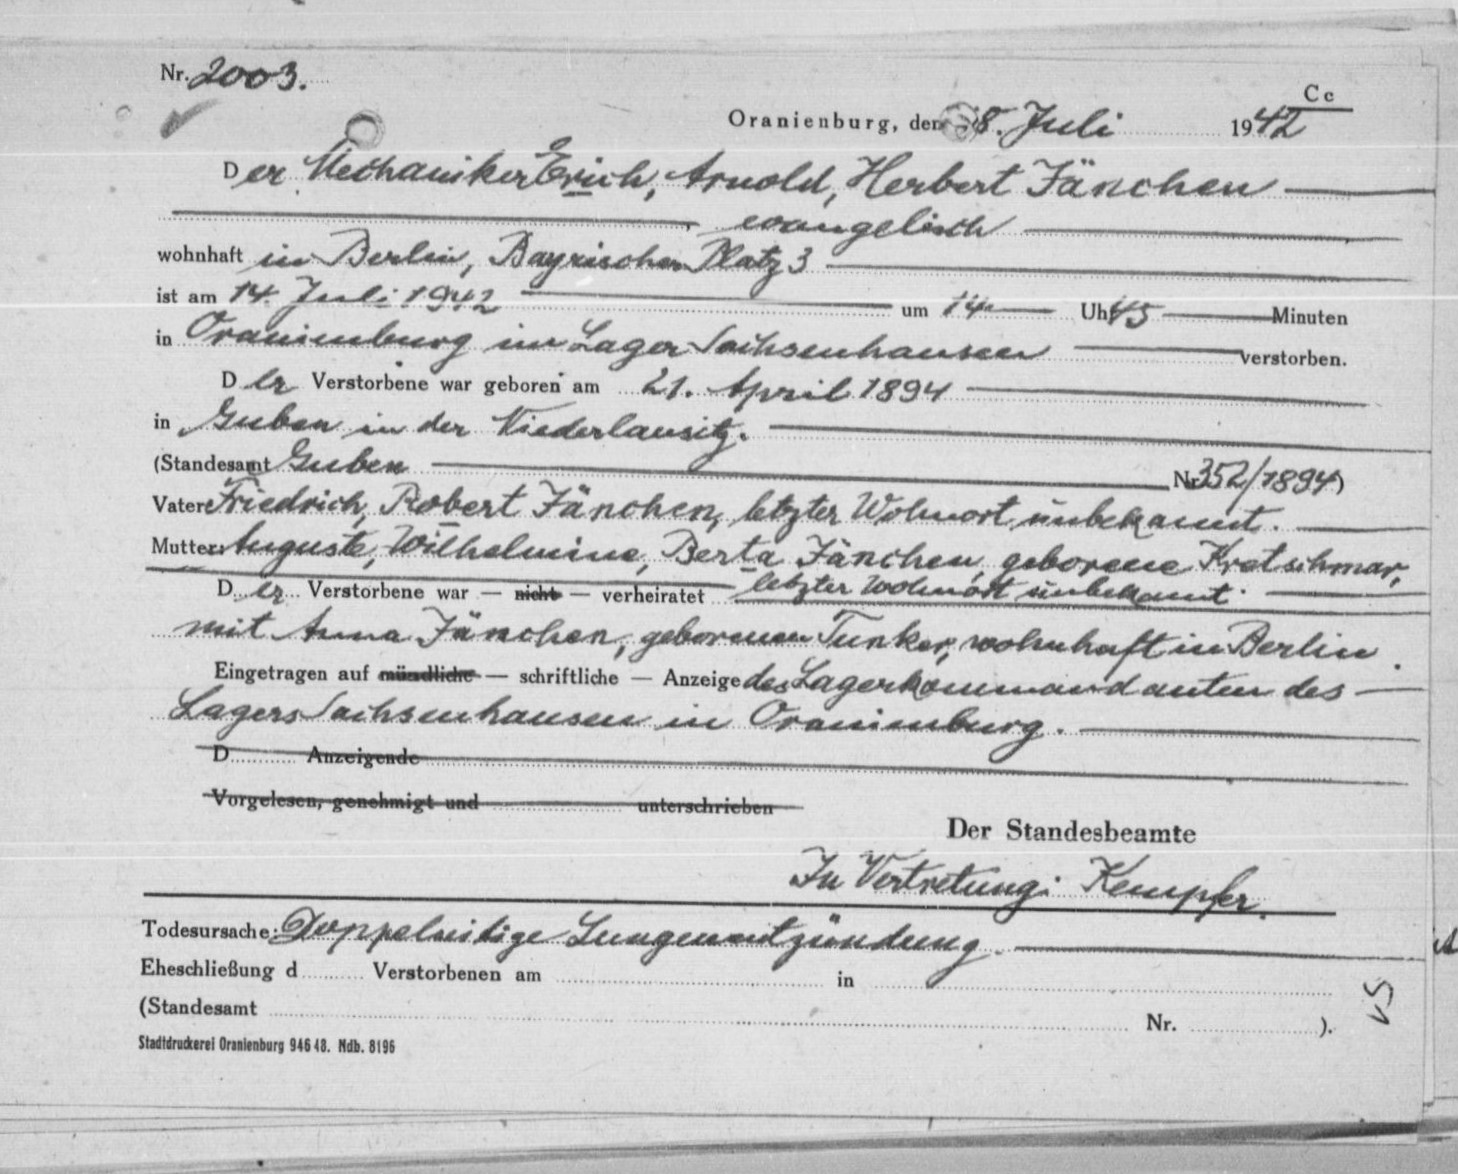 Nr. 2003.
Cc
Oranienburg, den 8. Juli 1942
Der Mechaniker Erich, Arnold, Herbert Jänchen
evangelisch
wohnhaft in Berlin, Bayrischer Platz 3
ist am 14. Juli 1942 um 14 Uhr 45 Minuten
in Oranienburg im Lager Sachsenhausen verstorben.
Der Verstorbene war geboren am 21. April 1894
in Guben in der Niederlausitz.
(Standesamt Guben Nr. 352/1894)
Vater: Friedrich, Robert Jänchen, letzter Wohnort unbekannt.
Mutter: Auguste, Wilhelmine, Berta Jänchen, geborene Kretschmar,
letzter Wohnort unbekannt.
Der Verstorbene war — nicht — verheiratet
mit Anna Jänchen, geborenen Tunker, wohnhaft in Berlin.
Eingetragen auf mündliche — schriftliche — Anzeige des Lagerkommandanten des
Lagers Sachsenhausen in Oranienburg.
D Anzeigende
Vorgelesen, genehmigt und unterschrieben
Der Standesbeamte
In Vertretung: Kempfer.
Todesursache: Doppelseitige Lungenentzündung.
Eheschließung d Verstorbenen am in
(Standesamt Nr. ).
Stadtdruckerei Oranienburg 946 48. Ndb. 8196